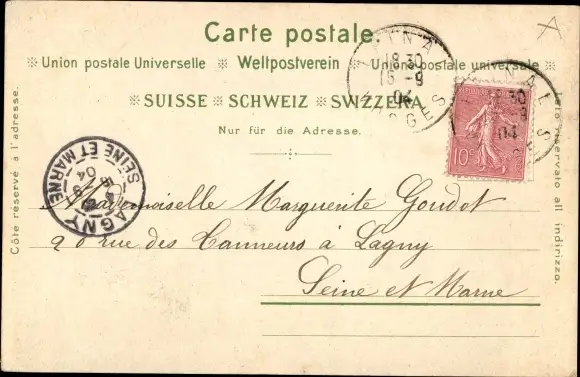 Carte postale.
※ Union postale Universelle ※ Weltpostverein ※ Union postale universale ※
※ SUISSE ※ SCHWEIZ ※ SVIZZERA ※
Nur für die Adresse.
Côté réservé à l'adresse.
lato riservato all indirizzo.
18 30
6 - 9
04
VOSGES
10
LAGNY
SEINE ET MARNE
04
Mademoiselle Marguerite Goudot
rue des Tanneurs à Lagny
Seine et Marne